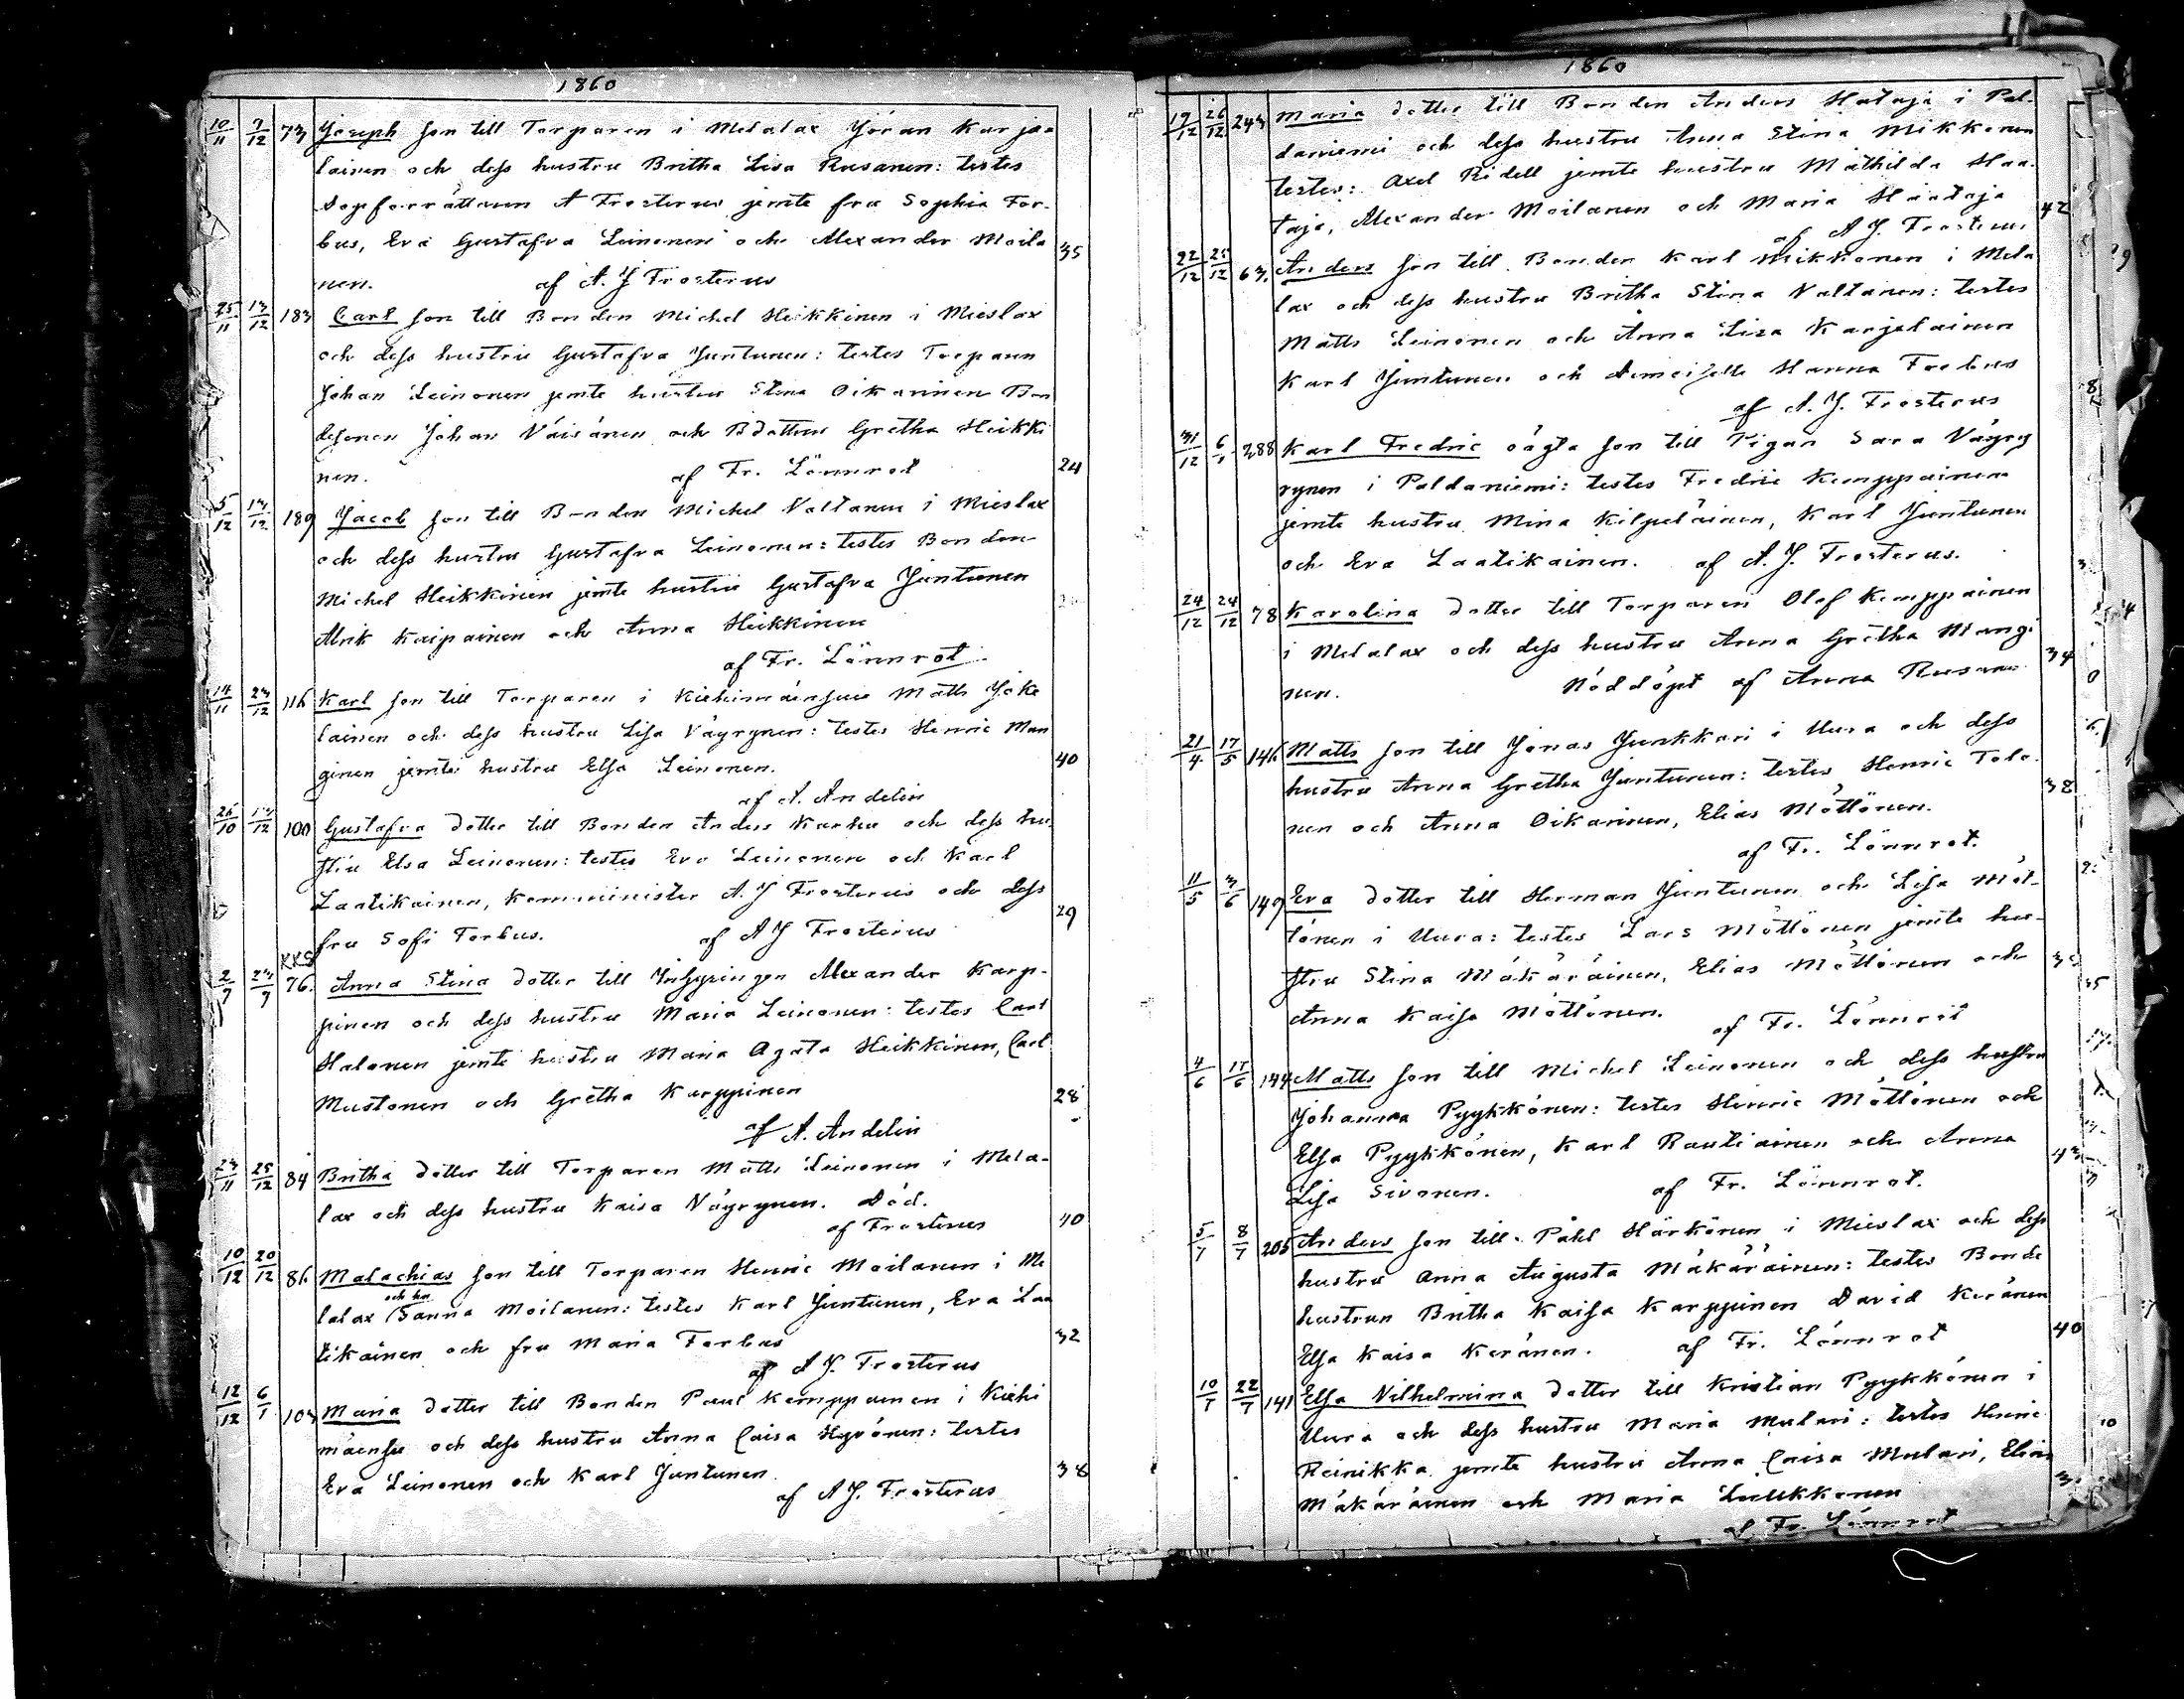 1860
10/11 7/12 73 Joseph son till Torparen i Melalax Jöran Karja-
lainen och dess hustru Britha Lisa Rusanen: testes
Dopförrättaren A Frosterus jemte fru Sophia For-
bus, Eva Gustafva Leinonen och Alexander Moila 35
nen. af A. J Frosterus
25/11 13/12 183 Carl son till Bonden Michel Heikkinen i Mieslax
och dess hustru Gustafva Juntunen: testes Torparen
Johan Leinonen jemte hustru Stina Oikarinen Bon
desonen Johan Väisänen och Bdottern Gretha Heikki
nen. af Fr. Lönnrot 24
5/12 13/12 189 Jacob son till Bonden Michel Valtanen i Mieslax
och dess hustru Gustafva Leinonen: testes Bonden
Michel Heikkinen jemte hustru Gustafva Juntunen
Alrik Kaipainen och Anna Heikkinen
af Fr. Lönnrot.
14/11 23/12 116 Karl son till Torparen i Kiehimäensuu Matts Joke
lainen och dess hustru Lisa Väyrynen: testes Henric Man
ginen jemte hustru Elsa Leinonen. 40
af A. Andelin
26/10 13/12 100 Gustafva dotter till Bonden Anders Karhu och dess hu-
stru Elsa Leinonen: testes Eva Leinonen och Karl
Laatikainen, Komminister A. J Frosterus och dess
fru Sofi Forbus. af A J Frosterus 29
KKS
2/9 23/9 76. Anna Stina dotter till Inhysingen Alexander Karp-
pinen och dess hustru Maria Leinonen: testes Carl
Halonen jemte hustru Maria Agata Heikkinen, Carl
Mustonen och Gretha Karppinen 28
af A. Andelin
23/11 25/12 84 Britha dotter till Torparen Matts Leinonen i Mela-
lax och dess hustru Kaisa Väyrynen. Död.
af Frosterus 40
10/12 20/12 86 Malachias son till Torparen Henric Moilanen i Me
och hu
lalax Sanna Moilanen: testes Karl Juntunen, Eva Laa
tikainen och fru Maria Forbus 32
af A J. Frosterus
12/12 6/1 103 Maria dotter till Bonden Paul Kemppainen i Kiehi
mäensu och dess hustru Anna Caisa Hyvönen: testes
Eva Leinonen och Karl Juntunen 38
af A J. Frosterus
1860
19/12 26/12 243 Maria dotter till Bonden Anders Hataja i Pal-
daniemi och dess hustru Anna Stina Mikkonen
testes: Axel Ridell jemte hustru Mathilda Haa-
taja, Alexander Moilanen och Maria Haataja 42
af A J. Frosterus
22/12 25/12 63. Anders son till Bonden Karl Mikkonen i Mela
lax och dess hustru Britha Stina Valtanen: testes
Matts Leinonen och Anna Lisa Karjalainen
Karl Juntunen och Demoiselle Hanna Forbus
af A. J. Frosterus
31/12 6/1 288 Karl Fredric oägta son till Pigan Sara Väyry
rynen i Paldaniemi: testes Fredric Kemppainen
jemte hustru Mina Kilpeläinen, Karl Juntunen
och Eva Laatikainen. af A. J. Frosterus.
24/12 24/12 78 Karolina dotter till Torparen Olof Kemppainen
i Melalax och dess hustru Anna Gretha Mangi
nen. Nöddöpt af Anna Rusanen 34
21/4 17/5 146 Matts son till Jonas Junkkari i Uura och dess
hustru Anna Gretha Juntunen: testes Henric Tolo-
nen och Anna Oikarinen, Elias Möttönen. 38
af Fr. Lönnrot.
11/5 3/6 149 Eva dotter till Herman Juntunen och Lisa Möt-
tönen i Uura: testes Lars Möttönen jemte hu-
stru Stina Mäkäräinen, Elias Möttönen och
Anna Kaisa Möttönen. af Fr. Lönnrot
4/6 17/6 144 Matts son till Michel Leinonen och dess hustru
Johanna Pyykkönen: testes Henric Möttönen och
Elsa Pyykkönen, Karl Rautiainen och Anna
Lisa Sivonen. af Fr. Lönnrot.
5/7 8/7 205 Anders son till Påhl Härkönen i Mieslax och dess
hustru Anna Augusta Mäkäräinen: testes Bonde
hustrun Britha Kaisa Karppinen David Keränen
Elsa Kaisa Keränen. af Fr. Lönnrot 40
10/7 22/7 141 Elsa Vilhelmina dotter till Kristian Pyykkönen i
Uura och dess hustru Maria Mulari: testes Henric
Reinikka jemte hustru Anna Caisa Mulari, Elias
Mäkäräinen och Maria Luukkonen
af Fr. Lönnrot